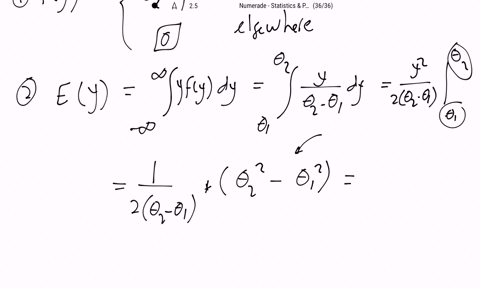 2.5 Numerade - Statistics & P... (36/36)
0 elsewhere
② E(y) = ∞∫-∞ yf(y) dy = θ₂∫θ₁ y/(θ₂-θ₁) dy = y²/2(θ₂-θ₁) |θ₂ θ₁
= 1/2(θ₂-θ₁) * (θ₂² - θ₁²) =